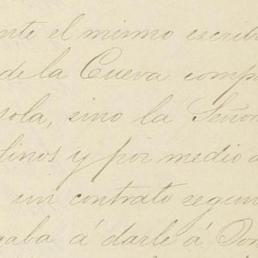 nte el mismo escrib
de la Cueva comp
sola, sino la Señor
linos y por medio d
un contrato segun
gaba á darle á Don